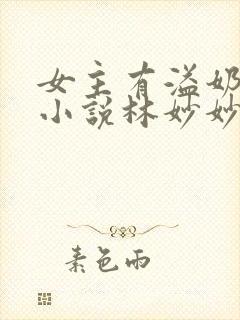 女主有溢奶
小說林妙妙
素色雨